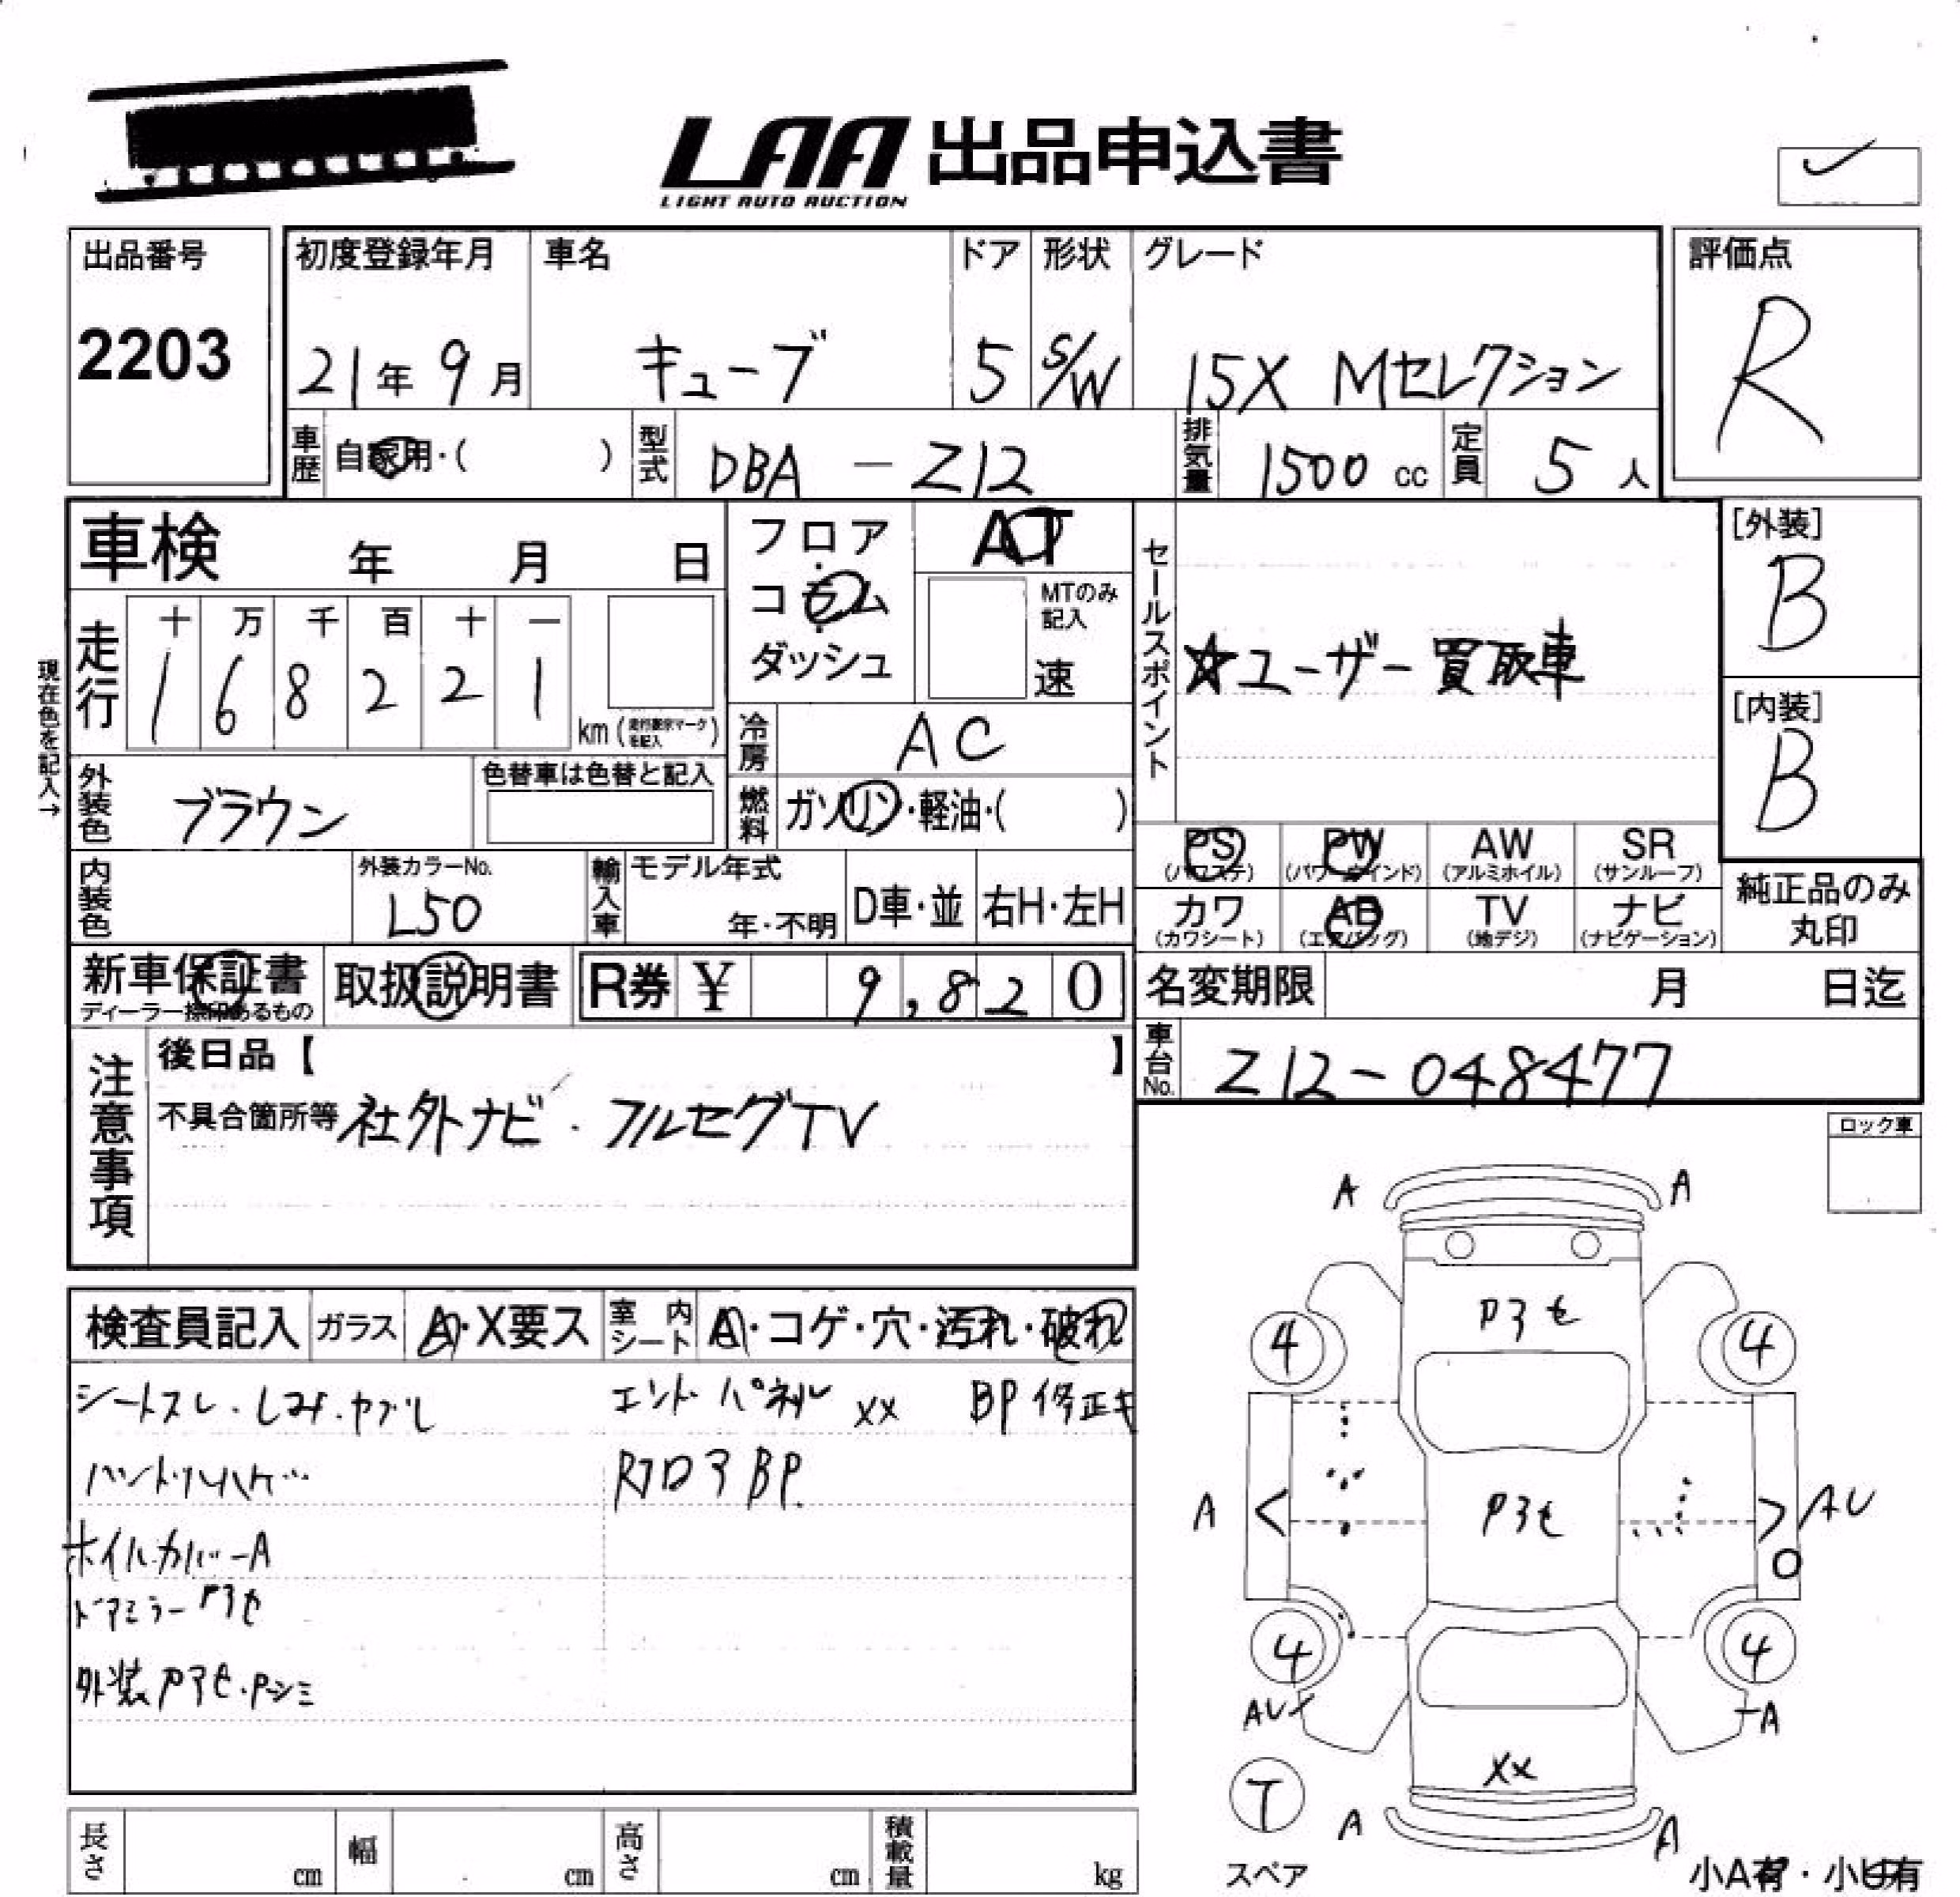 LAA 出品申込書
LIGHT AUTO AUCTION
出品番号
2203
初度登録年月 車名 ドア 形状 グレード
21年9月 キューブ 5 S/W 15X Mセレクション
評価点
R
車歴 自家用・( ) 型式 DBA-Z12 排気量 1500cc 定員 5人
車検 年 月 日
フロア・コラム・ダッシュ
AT
MTのみ記入
速
セールスポイント
☆ユーザー買取車
[外装]
B
[内装]
B
現在色を記入→
走行 十 万 千 百 十 一
1 6 8 2 2 1 km (走行表示マークを記入)
冷房 AC
燃料 ガソリン・軽油・( )
外装色 ブラウン 色替車は色替と記入
内装色 外装カラーNo. L50
輸入車 モデル年式 年・不明 D車・並 右H・左H
PS (パワステ) PW (パワーウインド) AW (アルミホイル) SR (サンルーフ)
カワ (カワシート) AB (エアバッグ) TV (地デジ) ナビ (ナビゲーション)
純正品のみ丸印
新車保証書 ディーラー捺印あるもの 取扱説明書 R券 ¥ 9,820
名変期限 月 日迄
車台No. Z12-048477
注意事項
後日品【 】
不具合箇所等 社外ナビ・フルセグTV
ロック車
検査員記入 ガラス A・X要ス 室内シート A・コゲ・穴・汚れ・破れ
シートスレ・シミ・ヤブレ エンドパネル XX BP修正キ
ハンドルハゲ RフロアBP
ホイルカバーA
ドアミラーPアセ
外装Pアセ・Pシミ
A A
Pアセ
4 4
A < Pアセ > AU
O
4 4
AU A
XX
T
スペア
A A
長さ cm 幅 cm 高さ cm 積載量 kg
小A有・小U有